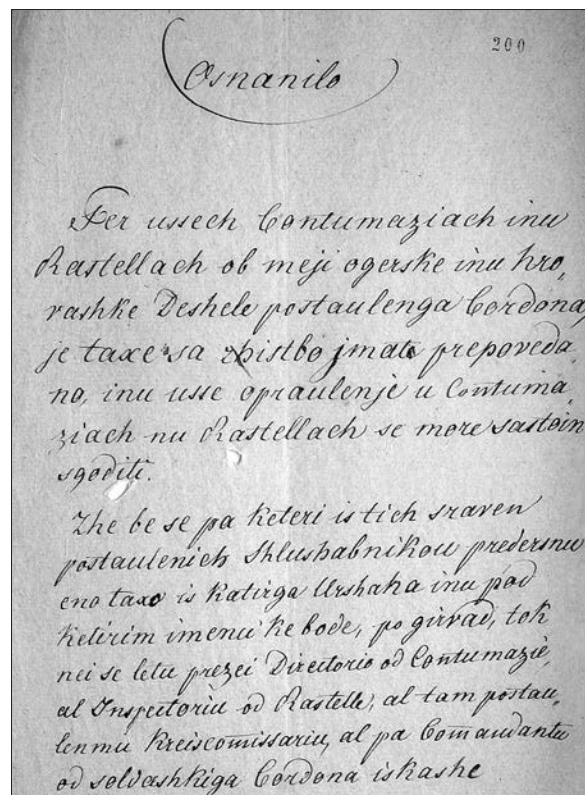 200
Osnanilo
Per ussech Contumaziach inu
Rastellach ob meji ogerske inu hro,
vashke Deshele postaulenga Cordona,
je taxe sa zhistbo jmate prepoveda,
no, inu usse opraulenje u Contuma,
ziach nu Rastellach se more sastoin
sgoditi.
Zhe be se pa keteri is tich sraven
postaulenich Shlushabnikou predersnu
eno taxo is katirga Urshaha inu pod
ketirim imenu ke bode, po girvad, tok
nei se letu przei Directorio od Contumazie,
al Inspectoriu od Rastelle, al tam postau,
lenmu Kreiscomissariu, al pa Comandantu
od soldashkiga Cordona iskashe